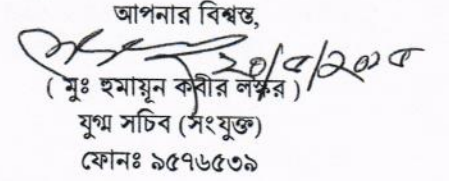 আপনার বিশ্বস্ত,
২০/৫/২০১৫
( মুঃ হুমায়ূন কবীর লস্কর )
যুগ্ম সচিব (সংযুক্ত)
ফোনঃ ৯৫৭৬৫৩৯